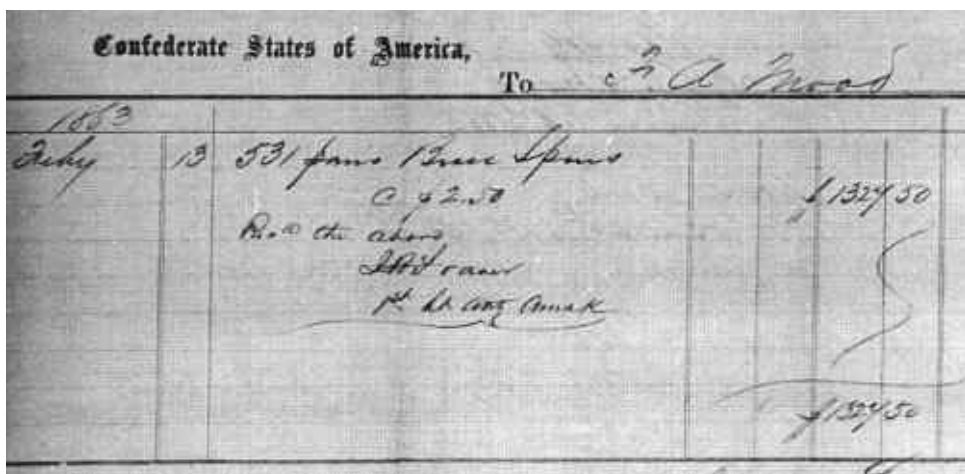 Confederate States of America,
To A Mood
1863
Feby 13 531 pairs Brass Spurs
@ $2.50 $1327 50
Recd the above
1st Lt Arty
$1327 50